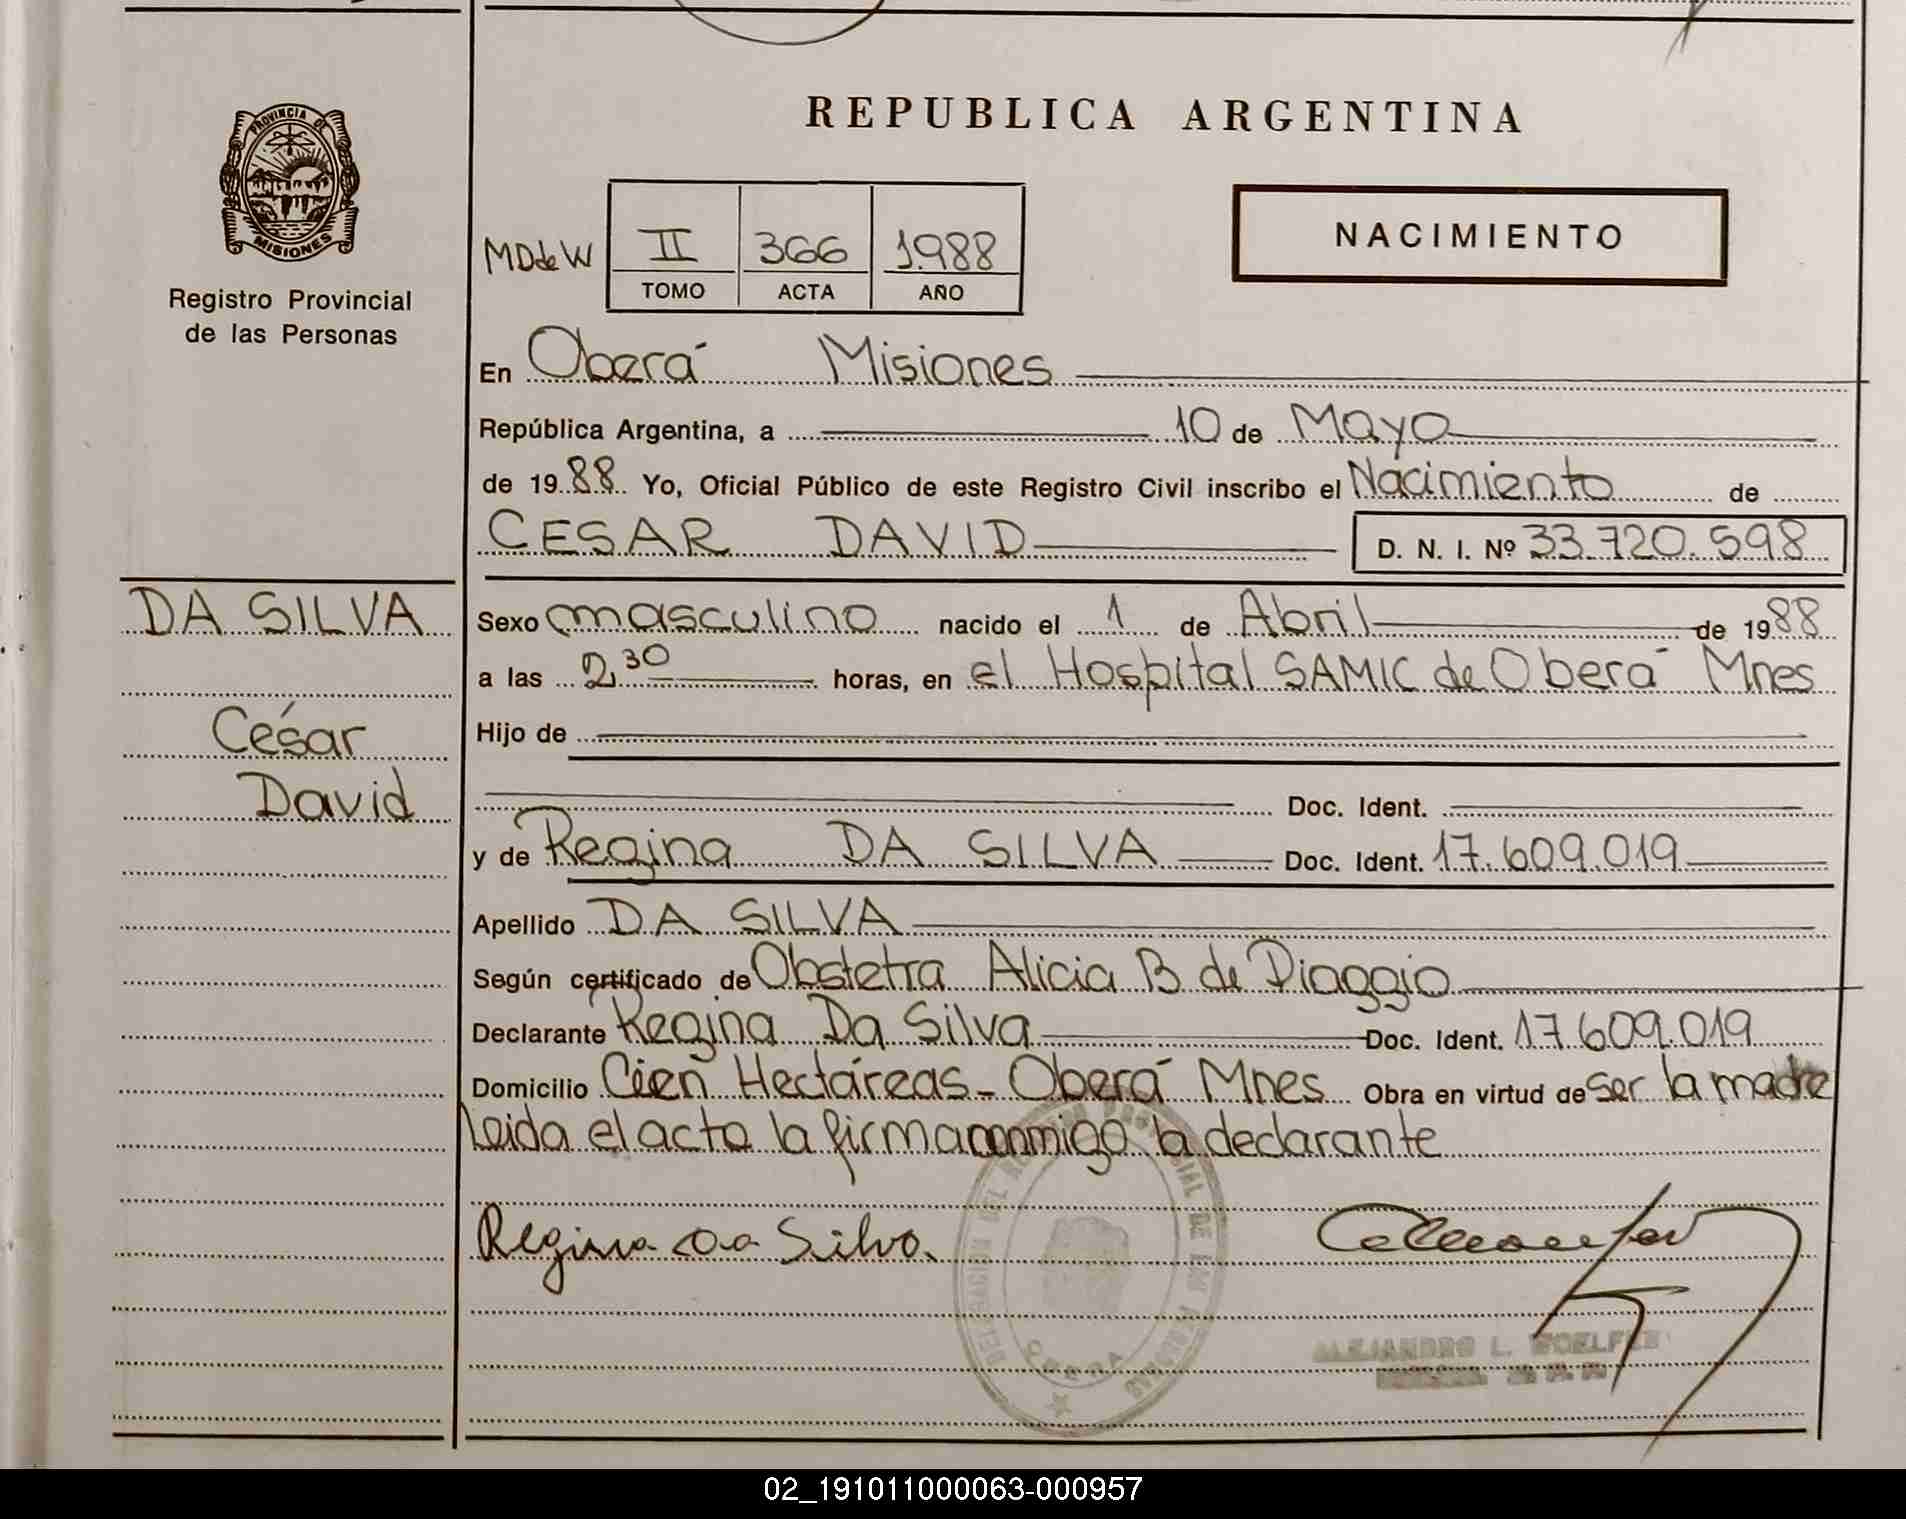 REPUBLICA ARGENTINA
PROVINCIA DE
MISIONES
Registro Provincial
de las Personas
MDdeW II 366 1.988
TOMO ACTA AÑO
NACIMIENTO
En Oberá Misiones
República Argentina, a 10 de Mayo
de 1988 Yo, Oficial Público de este Registro Civil inscribo el Nacimiento de
CESAR DAVID D. N. I. Nº 33.720.598
DA SILVA
César
David
Sexo masculino nacido el 1 de Abril de 1988
a las 2,30 horas, en el Hospital SAMIC de Oberá Mnes
Hijo de
Doc. Ident.
y de Regina DA SILVA Doc. Ident. 17.609.019
Apellido DA SILVA
Según certificado de Obstetra Alicia B de Piaggio
Declarante Regina Da Silva Doc. Ident. 17.609.019
Domicilio Cien Hectáreas - Oberá Mnes Obra en virtud de ser la madre
Leida el acto la firma conmigo la declarante
Regina Da Silva.
DELEGACION DEL REGISTRO PROVINCIAL DE LAS PERSONAS
OBERA
ALEJANDRO L.
02_191011000063-000957